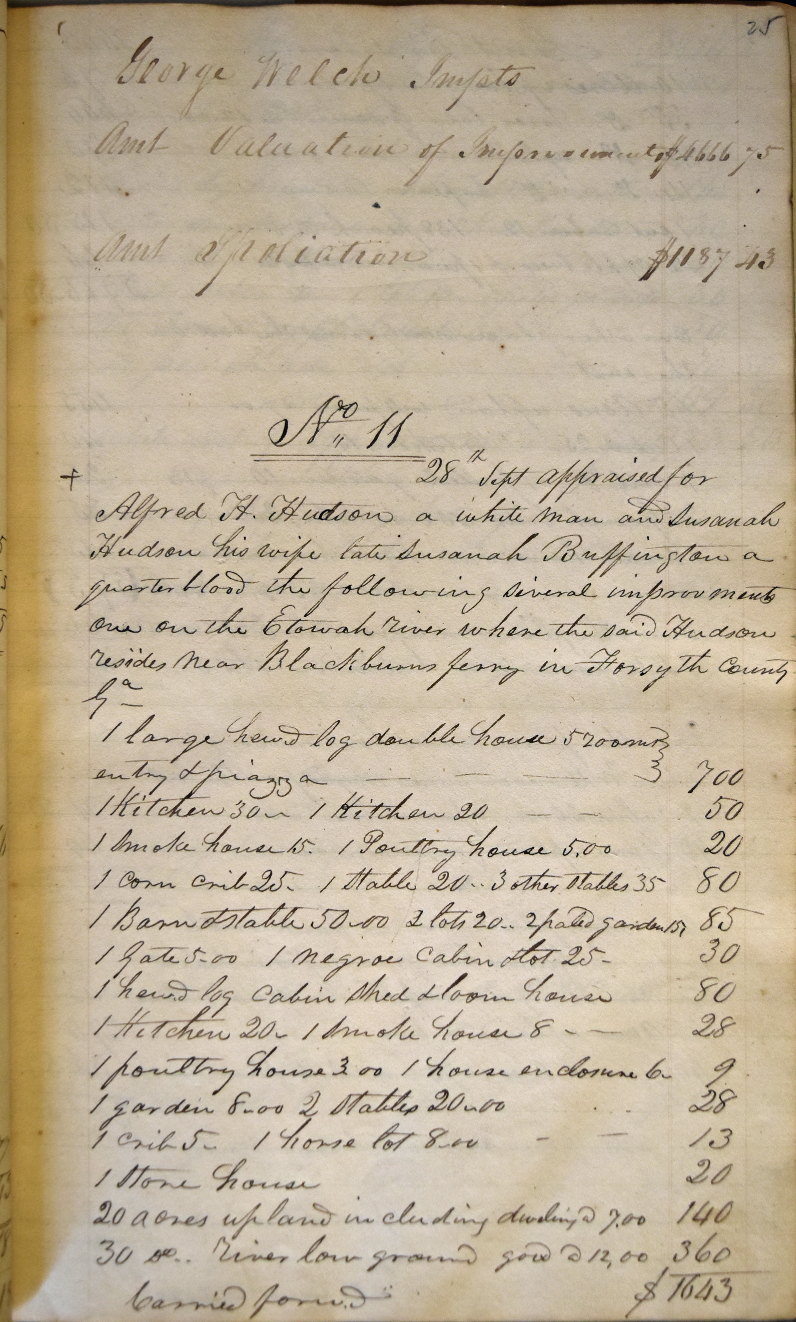 25
George Welch Impts
Amt Valuation of Improvements $4666 75
Amt Spoliation $1187 43
No 11
+ 28th Sept appraised for
Alfred H. Hudson a white man and Susanah
Hudson his wife late Susanah Buffington a
quarter blood the following several improvments
one on the Etowah river where the said Hudson
resides near Blackburns ferry in Forsyth County
Ga
1 large hew.d log double house 5 rooms }
entry & piazza — — — — } 700
1 Kitchen 30 1 Kitchen 20 — — 50
1 Smoke house 15. 1 Poultry house 5.00 20
1 corn crib 25. 1 Stable 20.. 3 other Stables 35 80
1 Barn & stable 50.00 2 lots 20.. 2 paled garden 15 85
1 Gate 5.00 1 negroe Cabin & lot 25- 30
1 hew.d log Cabin Shed & loom house 80
1 Kitchen 20 - 1 Smoke house 8 - — 28
1 poultry house 3.00 1 house enclosure 6- 9
1 garden 8.00 2 Stables 20.00 28
1 crib 5- 1 horse lot 8.00 - — 13
1 Stone house 20
20 acres upland including dwelling @ 7.00 140
30 do.. river low ground good @ 12,00 360
Carried forwd $ 1643